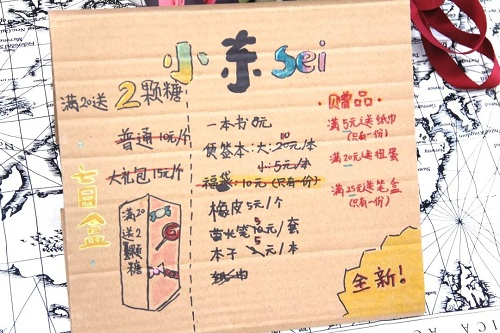 小东sei
满20送2颗糖
普通10元/个
大礼包15元/个
盲盒
满20送2颗糖
一本书8元
便签本:大:20元/本
10
小:5元/本
福袋:10元(只有一份)
橡皮5元/个
萤光笔10元/套
5
本子2元/本
5
赠品
满5元送纸巾
(只有一份)
满20元送扭蛋
满25元送笔盒
(只有一份)
全新!